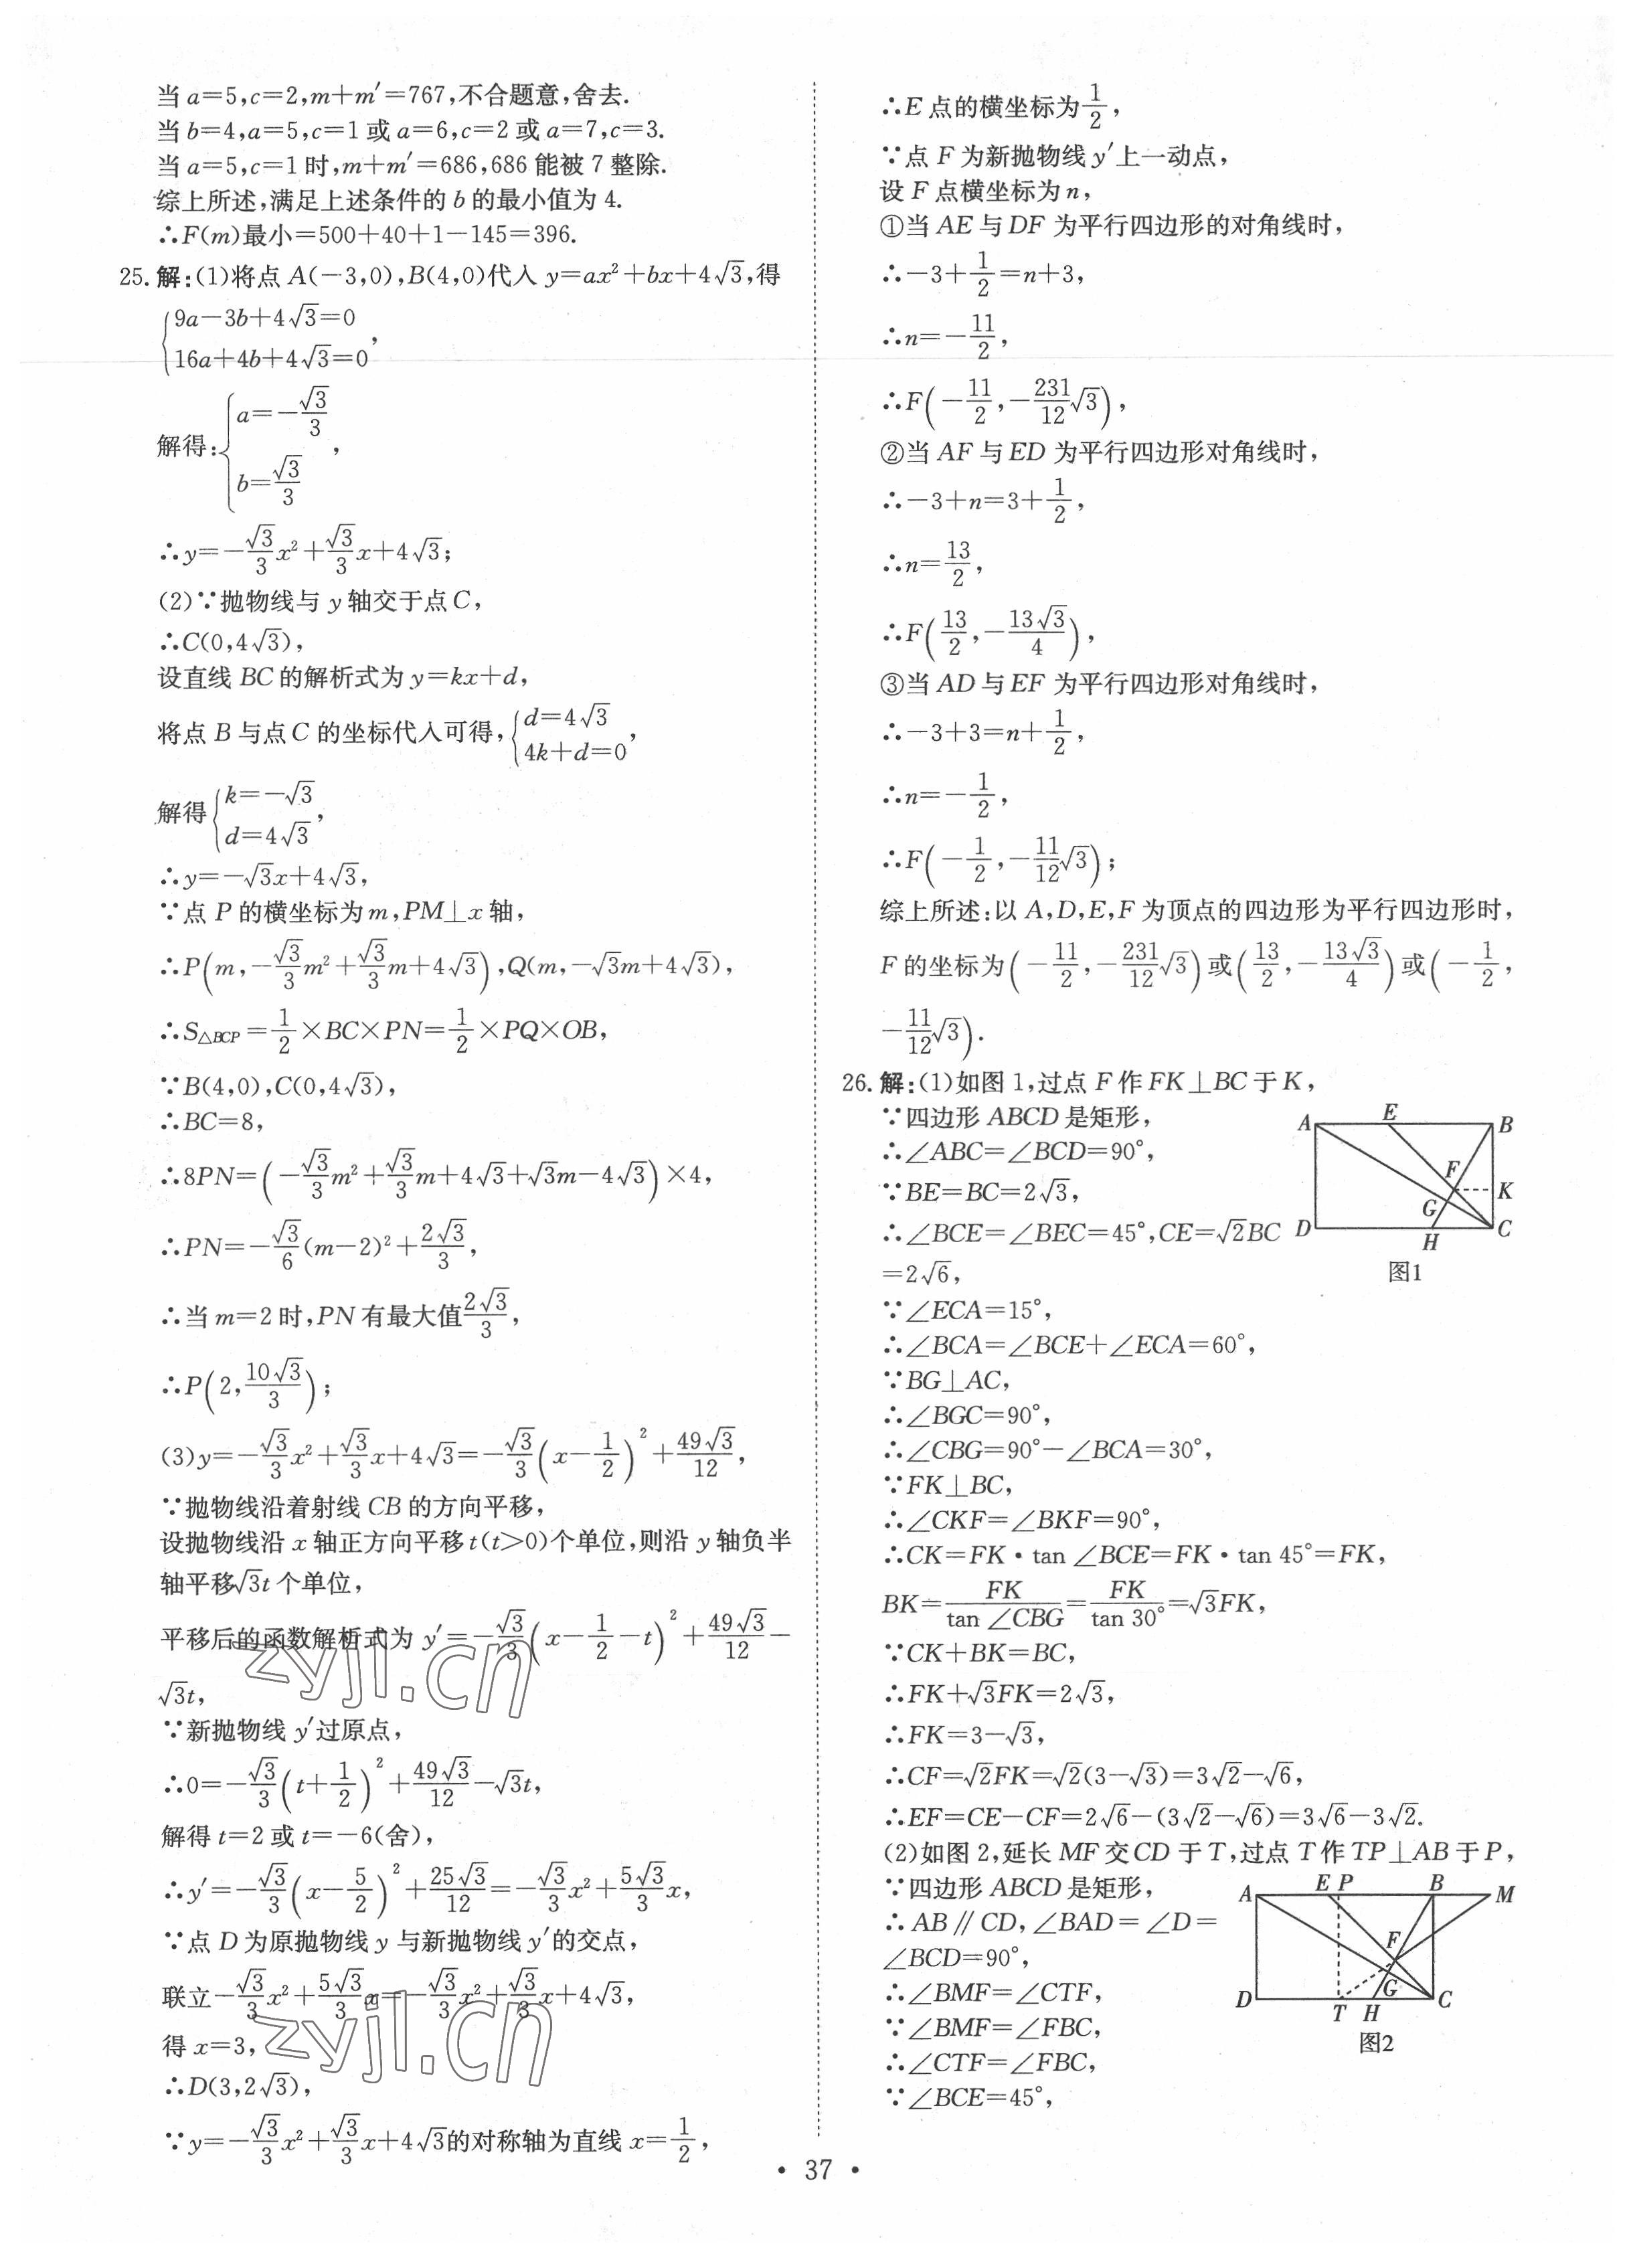 当 a=5,c=2,m+m′=767,不合题意,舍去.
当 b=4,a=5,c=1 或 a=6,c=2 或 a=7,c=3.
当 a=5,c=1 时,m+m′=686,686 能被 7 整除.
综上所述,满足上述条件的 b 的最小值为 4.
∴F(m)最小=500+40+1−145=396.
25. 解:(1)将点 A(−3,0),B(4,0)代入 y=ax²+bx+4√3,得
{9a−3b+4√3=0
16a+4b+4√3=0,
解得:{a=−√3/3
b=√3/3,
∴y=−√3/3x²+√3/3x+4√3;
(2)∵抛物线与 y 轴交于点 C,
∴C(0,4√3),
设直线 BC 的解析式为 y=kx+d,
将点 B 与点 C 的坐标代入可得,{d=4√3
4k+d=0,
解得{k=−√3
d=4√3,
∴y=−√3x+4√3,
∵点 P 的横坐标为 m,PM⊥x 轴,
∴P(m,−√3/3m²+√3/3m+4√3),Q(m,−√3m+4√3),
∴S△BCP=1/2×BC×PN=1/2×PQ×OB,
∵B(4,0),C(0,4√3),
∴BC=8,
∴8PN=(−√3/3m²+√3/3m+4√3+√3m−4√3)×4,
∴PN=−√3/6(m−2)²+2√3/3,
∴当 m=2 时,PN 有最大值2√3/3,
∴P(2,10√3/3);
(3)y=−√3/3x²+√3/3x+4√3=−√3/3(x−1/2)²+49√3/12,
∵抛物线沿着射线 CB 的方向平移,
设抛物线沿 x 轴正方向平移 t(t>0)个单位,则沿 y 轴负半
轴平移√3t 个单位,
平移后的函数解析式为 y′=−√3/3(x−1/2−t)²+49√3/12−
√3t,
∵新抛物线 y′过原点,
∴0=−√3/3(t+1/2)²+49√3/12−√3t,
解得 t=2 或 t=−6(舍),
∴y′=−√3/3(x−5/2)²+25√3/12=−√3/3x²+5√3/3x,
∵点 D 为原抛物线 y 与新抛物线 y′的交点,
联立−√3/3x²+5√3/3x=−√3/3x²+√3/3x+4√3,
得 x=3,
∴D(3,2√3),
∵y=−√3/3x²+√3/3x+4√3的对称轴为直线 x=1/2,
zyjl.cn
zyjl.cn
∴E 点的横坐标为1/2,
∵点 F 为新抛物线 y′上一动点,
设 F 点横坐标为 n,
①当 AE 与 DF 为平行四边形的对角线时,
∴−3+1/2=n+3,
∴n=−11/2,
∴F(−11/2,−231/12√3),
②当 AF 与 ED 为平行四边形对角线时,
∴−3+n=3+1/2,
∴n=13/2,
∴F(13/2,−13√3/4),
③当 AD 与 EF 为平行四边形对角线时,
∴−3+3=n+1/2,
∴n=−1/2,
∴F(−1/2,−11/12√3);
综上所述:以 A,D,E,F 为顶点的四边形为平行四边形时,
F 的坐标为(−11/2,−231/12√3)或(13/2,−13√3/4)或(−1/2,
−11/12√3).
26. 解:(1)如图 1,过点 F 作 FK⊥BC 于 K,
∵四边形 ABCD 是矩形,
∴∠ABC=∠BCD=90°,
∵BE=BC=2√3,
∴∠BCE=∠BEC=45°,CE=√2BC
=2√6,
∵∠ECA=15°,
∴∠BCA=∠BCE+∠ECA=60°,
∵BG⊥AC,
∴∠BGC=90°,
∴∠CBG=90°−∠BCA=30°,
∵FK⊥BC,
∴∠CKF=∠BKF=90°,
∴CK=FK·tan∠BCE=FK·tan 45°=FK,
BK=FK/tan∠CBG=FK/tan 30°=√3FK,
∵CK+BK=BC,
∴FK+√3FK=2√3,
∴FK=3−√3,
∴CF=√2FK=√2(3−√3)=3√2−√6,
∴EF=CE−CF=2√6−(3√2−√6)=3√6−3√2.
(2)如图 2,延长 MF 交 CD 于 T,过点 T 作 TP⊥AB 于 P,
∵四边形 ABCD 是矩形,
∴AB∥CD,∠BAD=∠D=
∠BCD=90°,
∴∠BMF=∠CTF,
∵∠BMF=∠FBC,
∴∠CTF=∠FBC,
∵∠BCE=45°,
A E B
F
K
G
D H C
图1
A E P B M
F
G
D T H C
图2
· 37 ·